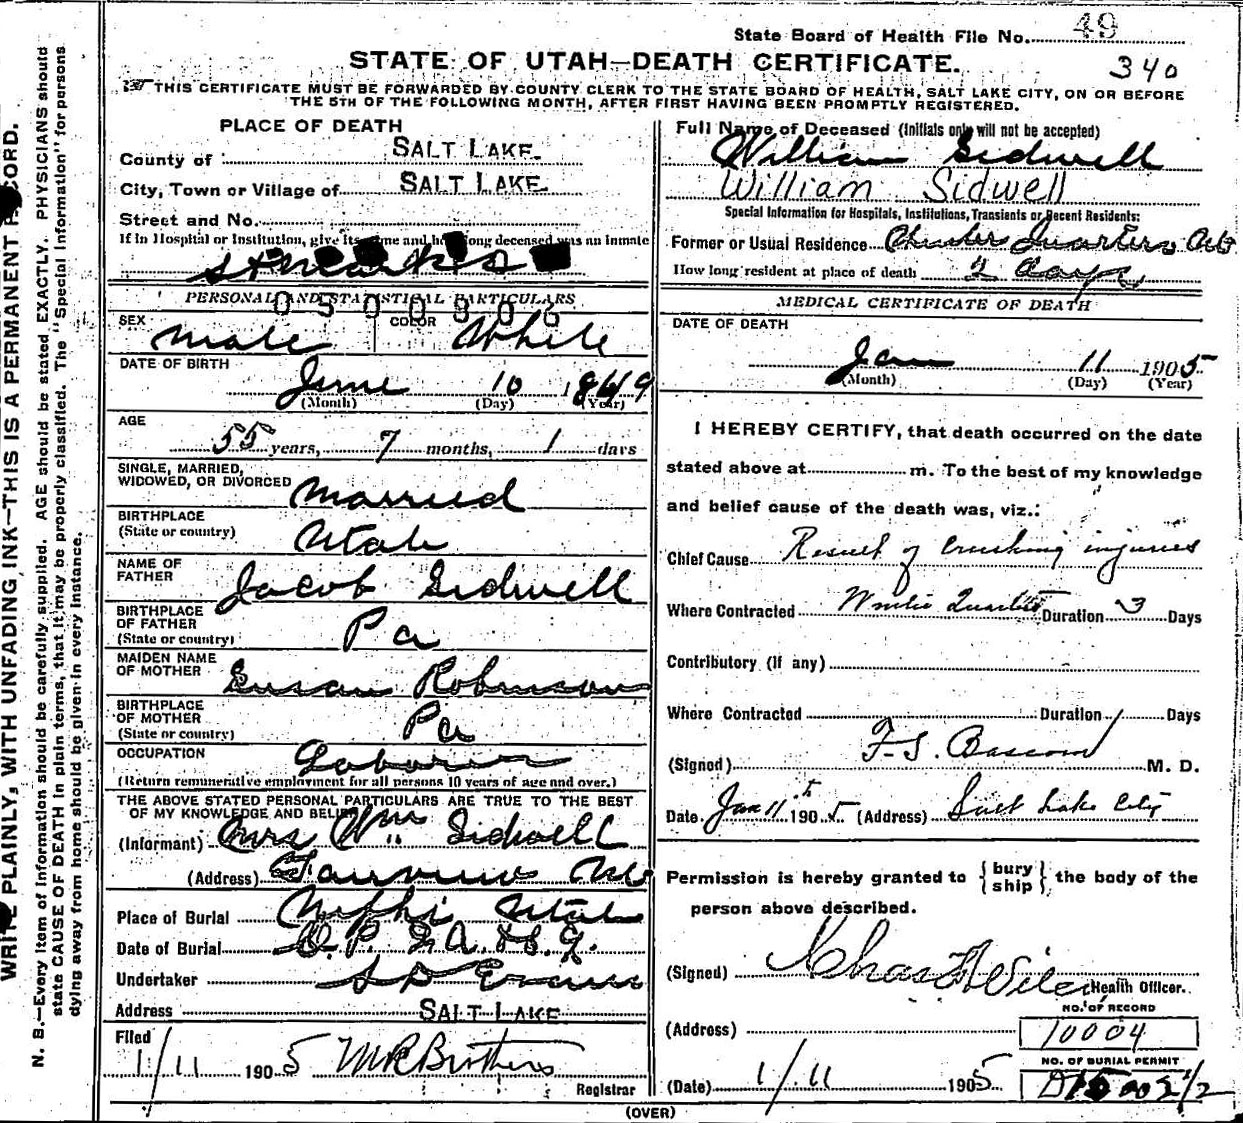 State Board of Health File No. 49
STATE OF UTAH—DEATH CERTIFICATE.
340
THIS CERTIFICATE MUST BE FORWARDED BY COUNTY CLERK TO THE STATE BOARD OF HEALTH, SALT LAKE CITY, ON OR BEFORE
THE 5TH OF THE FOLLOWING MONTH, AFTER FIRST HAVING BEEN PROMPTLY REGISTERED.
WRITE PLAINLY, WITH UNFADING INK—THIS IS A PERMANENT RECORD.
N. B.—Every item of information should be carefully supplied. AGE should be stated EXACTLY. PHYSICIANS should
state CAUSE OF DEATH in plain terms, that it may be properly classified. The "Special Information" for persons
dying away from home should be given in every instance.
PLACE OF DEATH
County of SALT LAKE.
City, Town or Village of SALT LAKE.
Street and No.
If in Hospital or Institution, give its name and how long deceased was an inmate
St Marks
PERSONAL AND STATISTICAL PARTICULARS
0500906
SEX Male COLOR White
DATE OF BIRTH
June 10 1849
(Month) (Day) (Year)
AGE
55 years, 7 months, 1 days
SINGLE, MARRIED,
WIDOWED, OR DIVORCED Married
BIRTHPLACE
(State or country) Utah
NAME OF
FATHER Jacob Sidwell
BIRTHPLACE
OF FATHER
(State or country) Pa
MAIDEN NAME
OF MOTHER Susan Robinson
BIRTHPLACE
OF MOTHER
(State or country) Pa
OCCUPATION Laborer
(Return remunerative employment for all persons 10 years of age and over.)
THE ABOVE STATED PERSONAL PARTICULARS ARE TRUE TO THE BEST
OF MY KNOWLEDGE AND BELIEF
(Informant) Mrs Wm Sidwell
(Address)
Place of Burial Nephi Utah
Date of Burial
Undertaker S D Evans
Address SALT LAKE
Filed
1/11 1905 M R Brothers
Registrar
Full Name of Deceased (Initials only will not be accepted)
William Sidwell
William Sidwell
Special Information for Hospitals, Institutions, Transients or Recent Residents:
Former or Usual Residence Quarters
How long resident at place of death 2 days
MEDICAL CERTIFICATE OF DEATH
DATE OF DEATH
Jan 11 1905
(Month) (Day) (Year)
I HEREBY CERTIFY, that death occurred on the date
stated above at m. To the best of my knowledge
and belief cause of the death was, viz.:
Chief Cause Result of Crushing injuries
Where Contracted Winter Quarters Duration 3 Days
Contributory (if any)
Where Contracted Duration Days
(Signed) F. S. Bascom M. D.
Date Jan 11th 1905 (Address) Salt Lake City
Permission is hereby granted to { bury
ship } the body of the
person above described.
(Signed) Chas Health Officer.
NO. OF RECORD
(Address) 10004
NO. OF BURIAL PERMIT
(Date) 1/11 1905
(OVER)